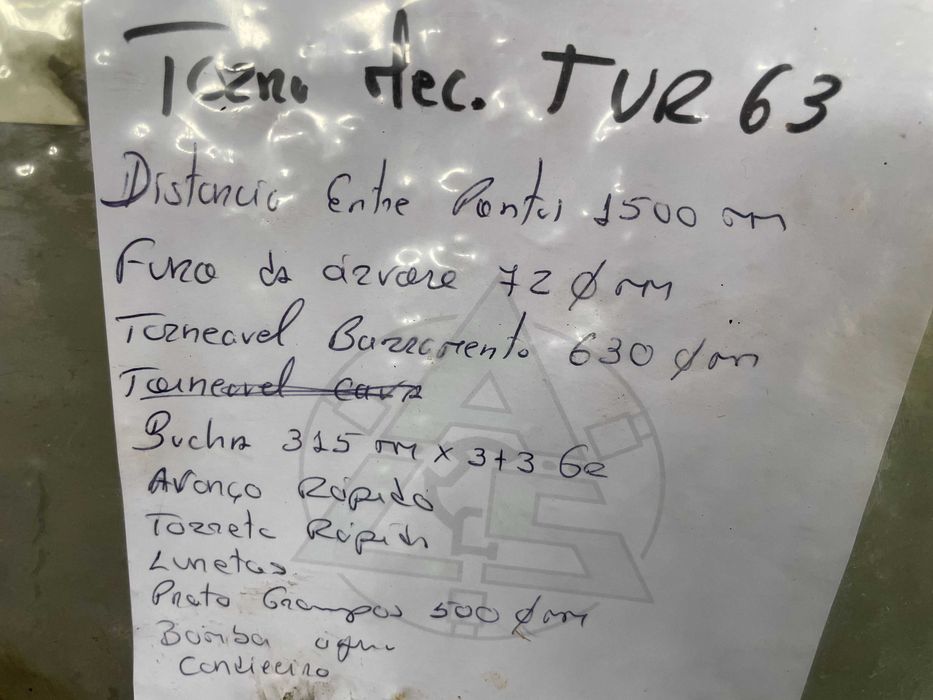 Torno Mec. TUR 63
Distancia Entre Pontas 1500 mm
Furo da árvore 72 Ø mm
Torneavel Barramento 630 Ø mm
Torneavel cava
Bucha 315 mm x 3+3 Gr
Avanço Rápido
Torreta Rápida
Lunetas
Prato Grampos 500 Ø mm
Bomba água
Candieeiro